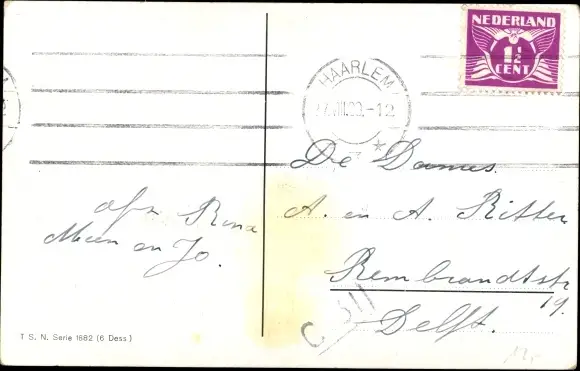 NEDERLAND
1½
CENT
HAARLEM
De Dames
A. en A. Ritter
Rembrandtstr
19.
Delft.
afz.
Mien en Jo.
T S. N. Serie 1682 (6 Dess)